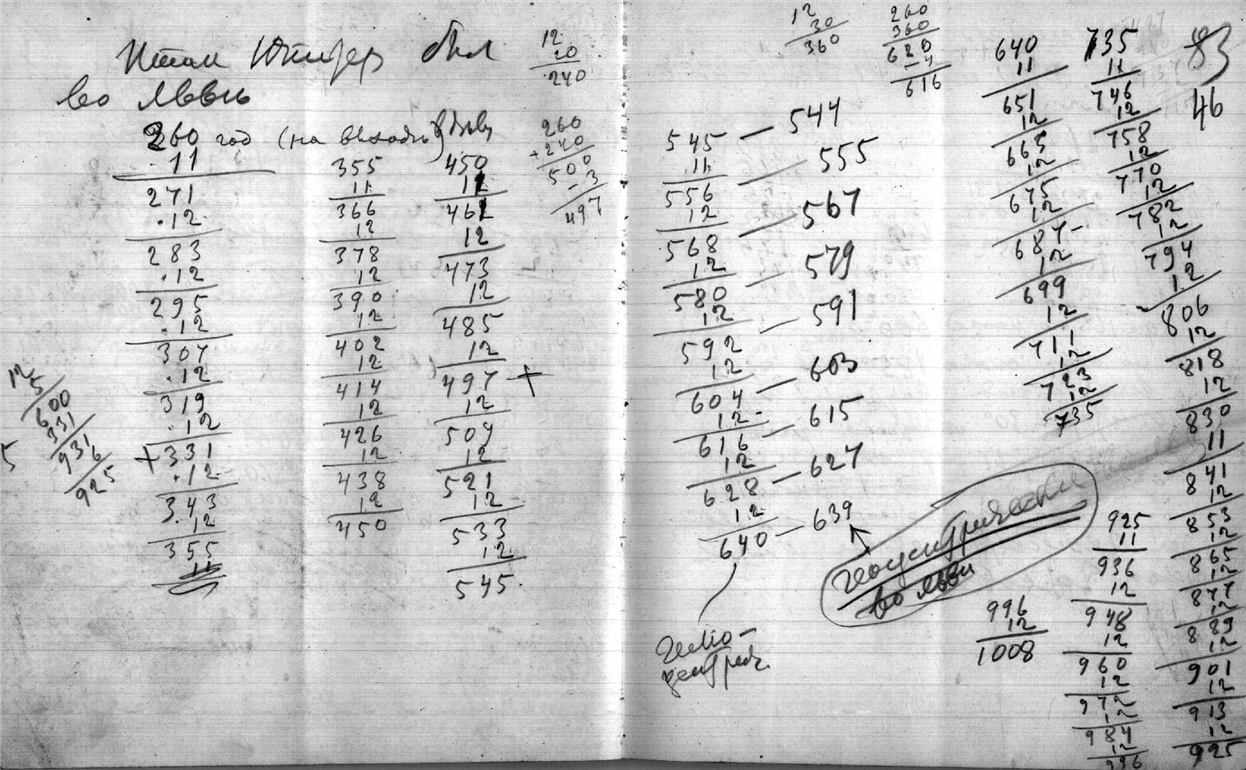 Итак Юпитер был
во Львѣ
260 год (на выходѣ)
11
271
.12
283
.12
295
.12
307
.12
319
.12
+331
.12
343
12
355
11
12
5
600
331
936
925
5
355
11
366
12
378
12
390
12
402
12
414
12
426
12
438
12
450
450
11
461
12
473
12
485
12
497 +
12
509
12
521
12
533
12
545.
12
20
240
260
+240
500
-3
497
12
30
360
260
360
620
-4
616
545 — 544
11
556 — 555
12
568 — 567
12
580 — 579
12
592 — 591
12
604 — 603
12
616 — 615
12
628 — 627
12
640 — 639
гелио-
центрич.
геоцентрически
во Льве
640
11
651
12
663
12
675
12
687-
12
699
12
711
12
723
12
735
735
11
746
12
758
12
770
12
782
12
794
12
806
12
818
12
830
11
841
12
853
12
865
12
877
12
889
12
901
12
913
12
925
83
46
925
11
936
12
948
12
960
12
972
12
984
12
996
996
12
1008